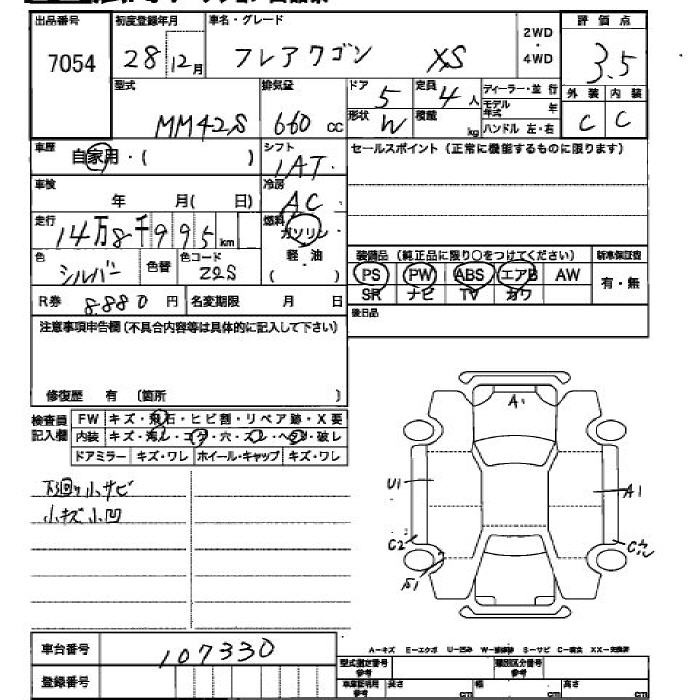 出品番号 初度登録年月 車名・グレード 評価点
7054 28 12月 フレアワゴン XS 2WD・4WD 3.5
型式 排気量 ドア 5 定員 4人 ディーラー・並行 外装 内装
MM42S 660 cc 形状 W 積載 kg モデル年式 年 C C
ハンドル 左・右
車歴 自家用・( ) シフト 1AT セールスポイント (正常に機能するものに限ります)
車検 年 月( 日) 冷房 AC
走行 14万8千995km 燃料 ガソリン
軽油
( )
色 シルバー 色替 色コード Z2S
装備品 (純正品に限り○をつけてください) 新車保証書
PS PW ABS エアB AW 有・無
SR ナビ TV カワ
R券 8.880円 名変期限 月 日
後日品
注意事項申告欄 (不具合内容等は具体的に記入して下さい)
修復歴 有 (箇所 )
検査員記入欄
FW キズ・飛石・ヒビ割・リペア跡・X要
内装 キズ・汚レ・コゲ・穴・スレ・ヘタリ・破レ
ドアミラー キズ・ワレ ホイール・キャップ キズ・ワレ
下回り小サビ
小キズ小凹
A1
U1
A1
C2
車台番号 107330
登録番号
A-キズ E-エクボ U-凹み S-サビ C-腐食
型式指定番号 参考 類別区分番号 参考
車庫証明用 参考 長さ cm 幅 cm 高さ cm